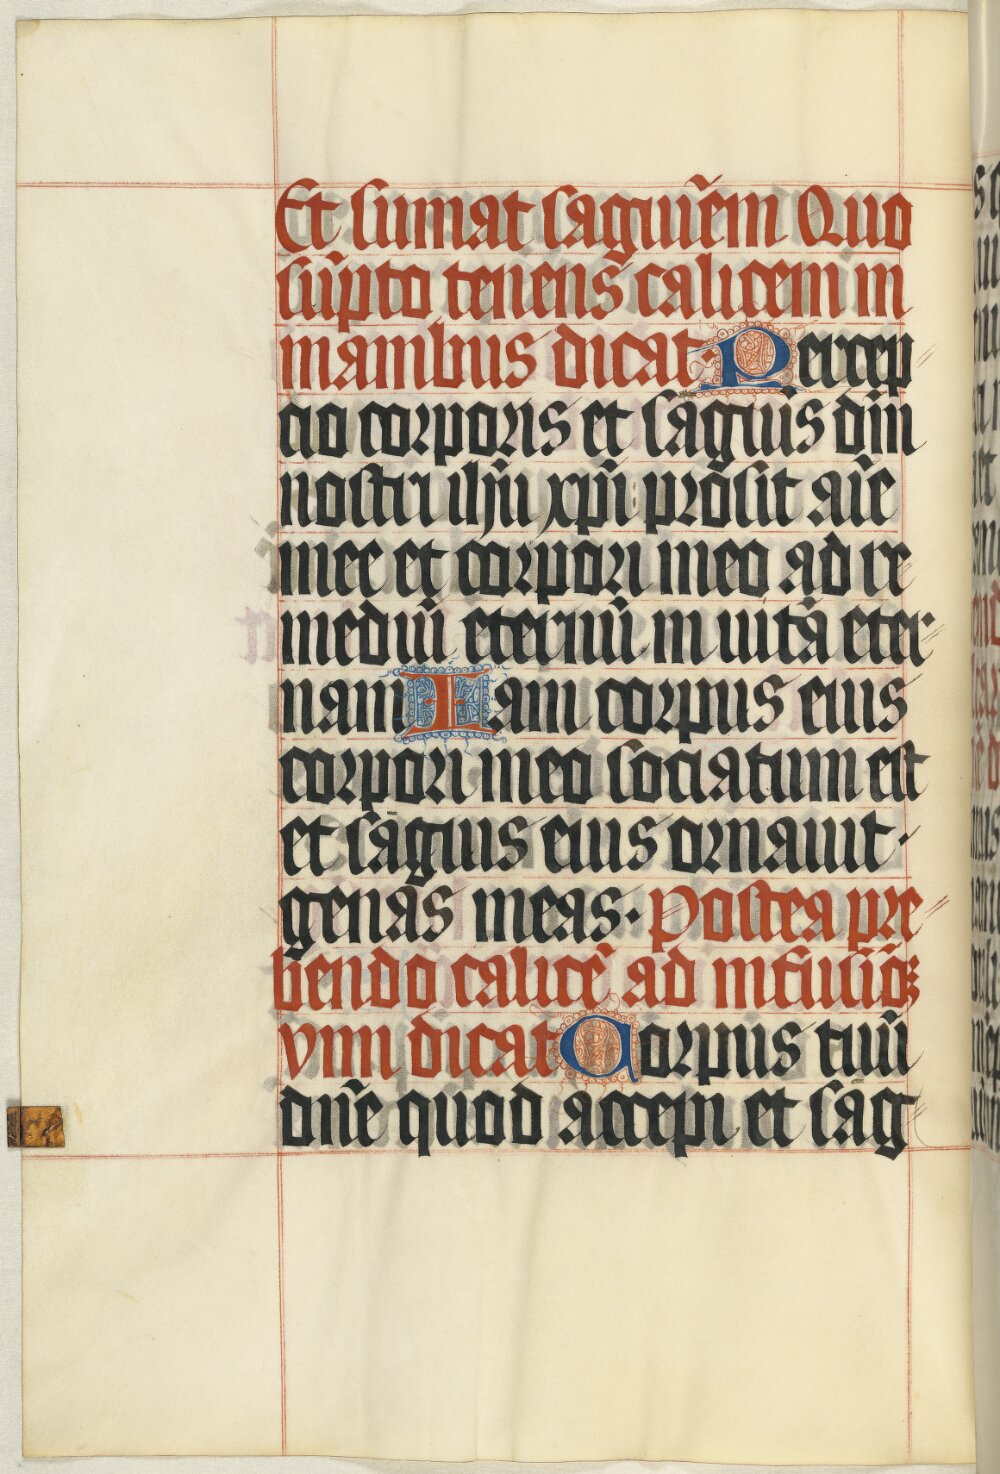 Et sumat saguiēm Quo
sūpto tenens calicem in
manibus dicat· Percep
tio corporis et sāguis dn̄i
nostri ihū xpī prosit aīe
mee et corpori meo ad re
mediū eternū in uitā eter
nam Iam corpus eius
corpori meo sociatum est
et sāguis eius ornauit·
genas meas· Postea pre
bendo calicē ad
vini dicat Corpus tuū
dn̄e quod accepi et sāg